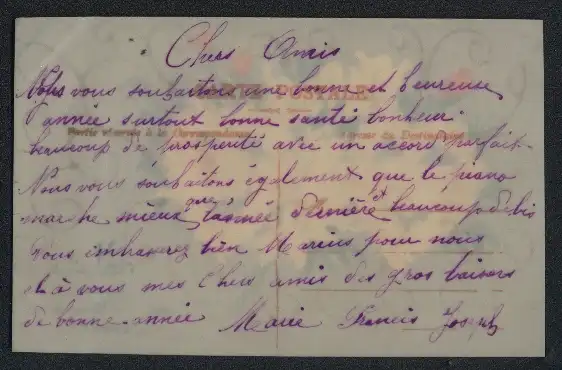 Chers Amis
Nous vous souhaitons une bonne et heureuse
CARTE POSTALE
année surtout bonne santé bonheur
Partie réservée à la Correspondance
Adresse du Destinataire
beaucoup de prosperité avec un accord parfait
Nous vous souhaitons également que le piano
marche mieux que l'année dernière et beaucoup de
Vous embrasserez bien Marius pour nous
et à vous mes Chers amis des gros baisers
de bonne année Marie Francis Joseph